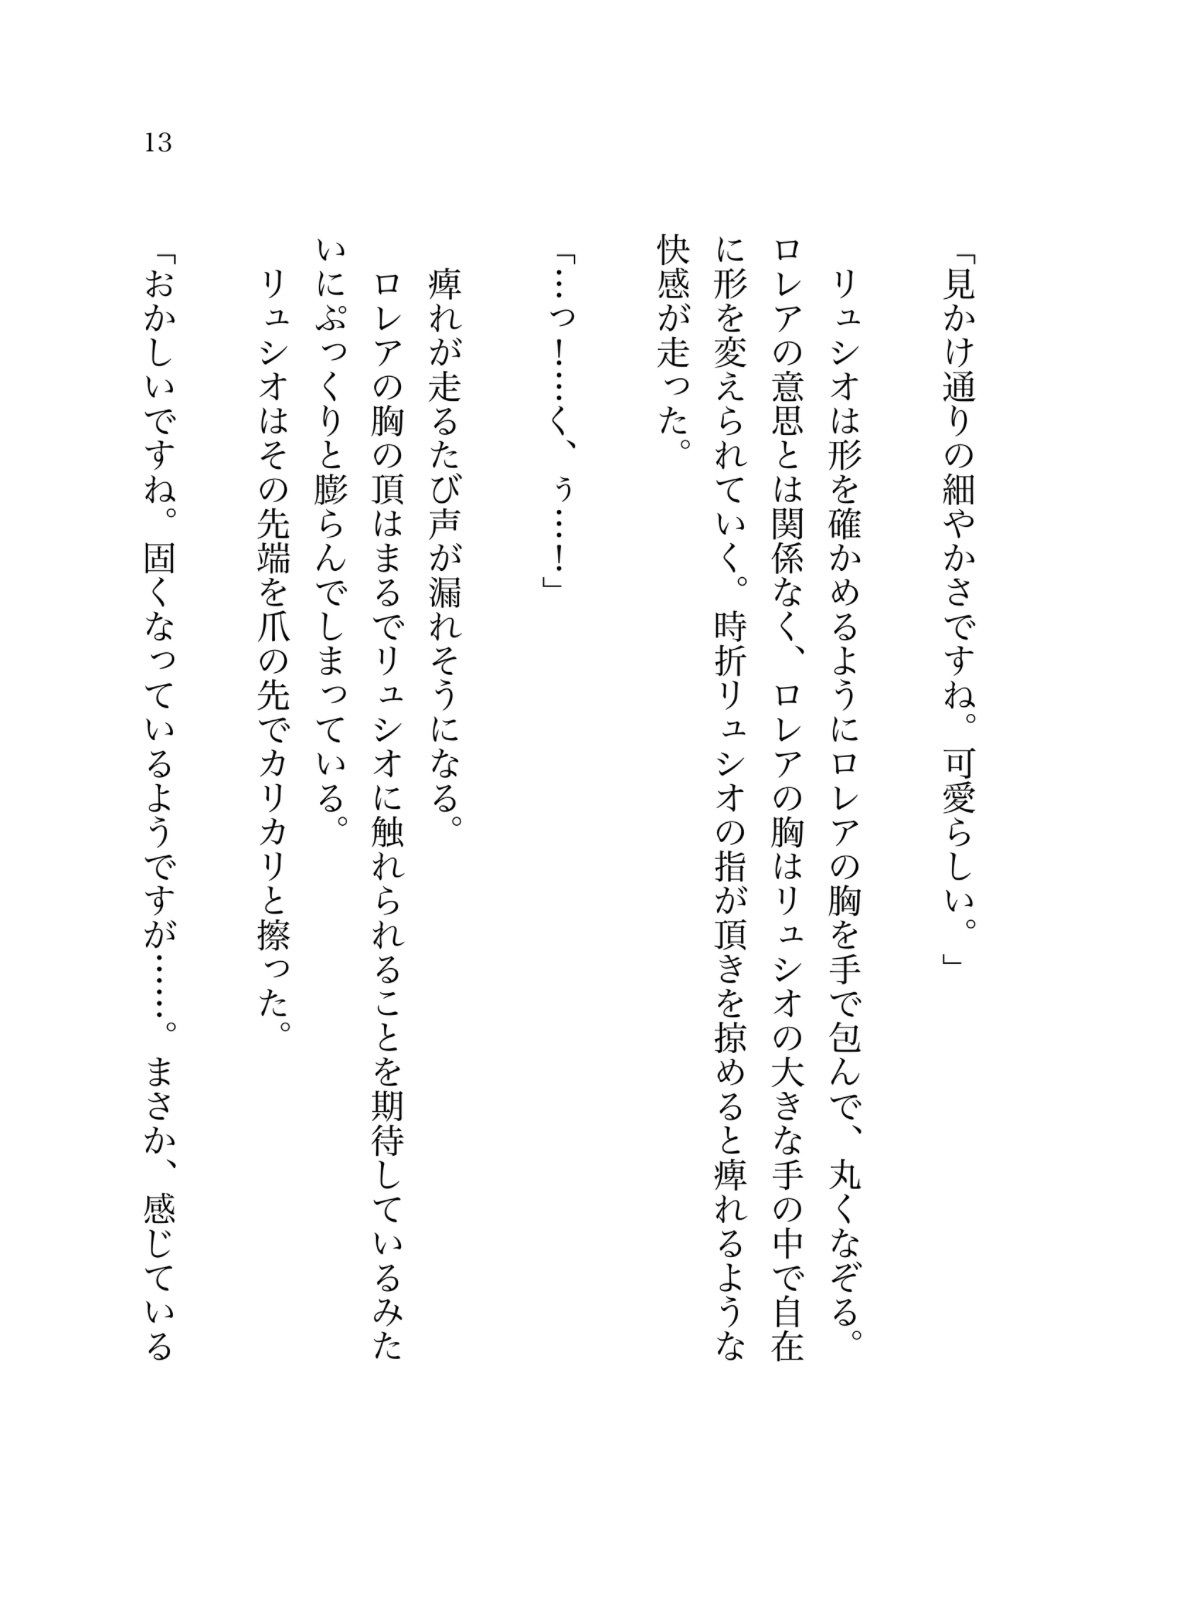 「見かけ通りの細やかさですね。可愛らしい。」
リュシオは形を確かめるようにロレアの胸を手で包んで、丸くなぞる。
ロレアの意思とは関係なく、ロレアの胸はリュシオの大きな手の中で自在
に形を変えられていく。時折リュシオの指が頂きを掠めると痺れるような
快感が走った。
「…っ！…く、ぅ…！」
痺れが走るたび声が漏れそうになる。
ロレアの胸の頂はまるでリュシオに触れられることを期待しているみた
いにぷっくりと膨らんでしまっている。
リュシオはその先端を爪の先でカリカリと擦った。
「おかしいですね。固くなっているようですが……。まさか、感じている
13